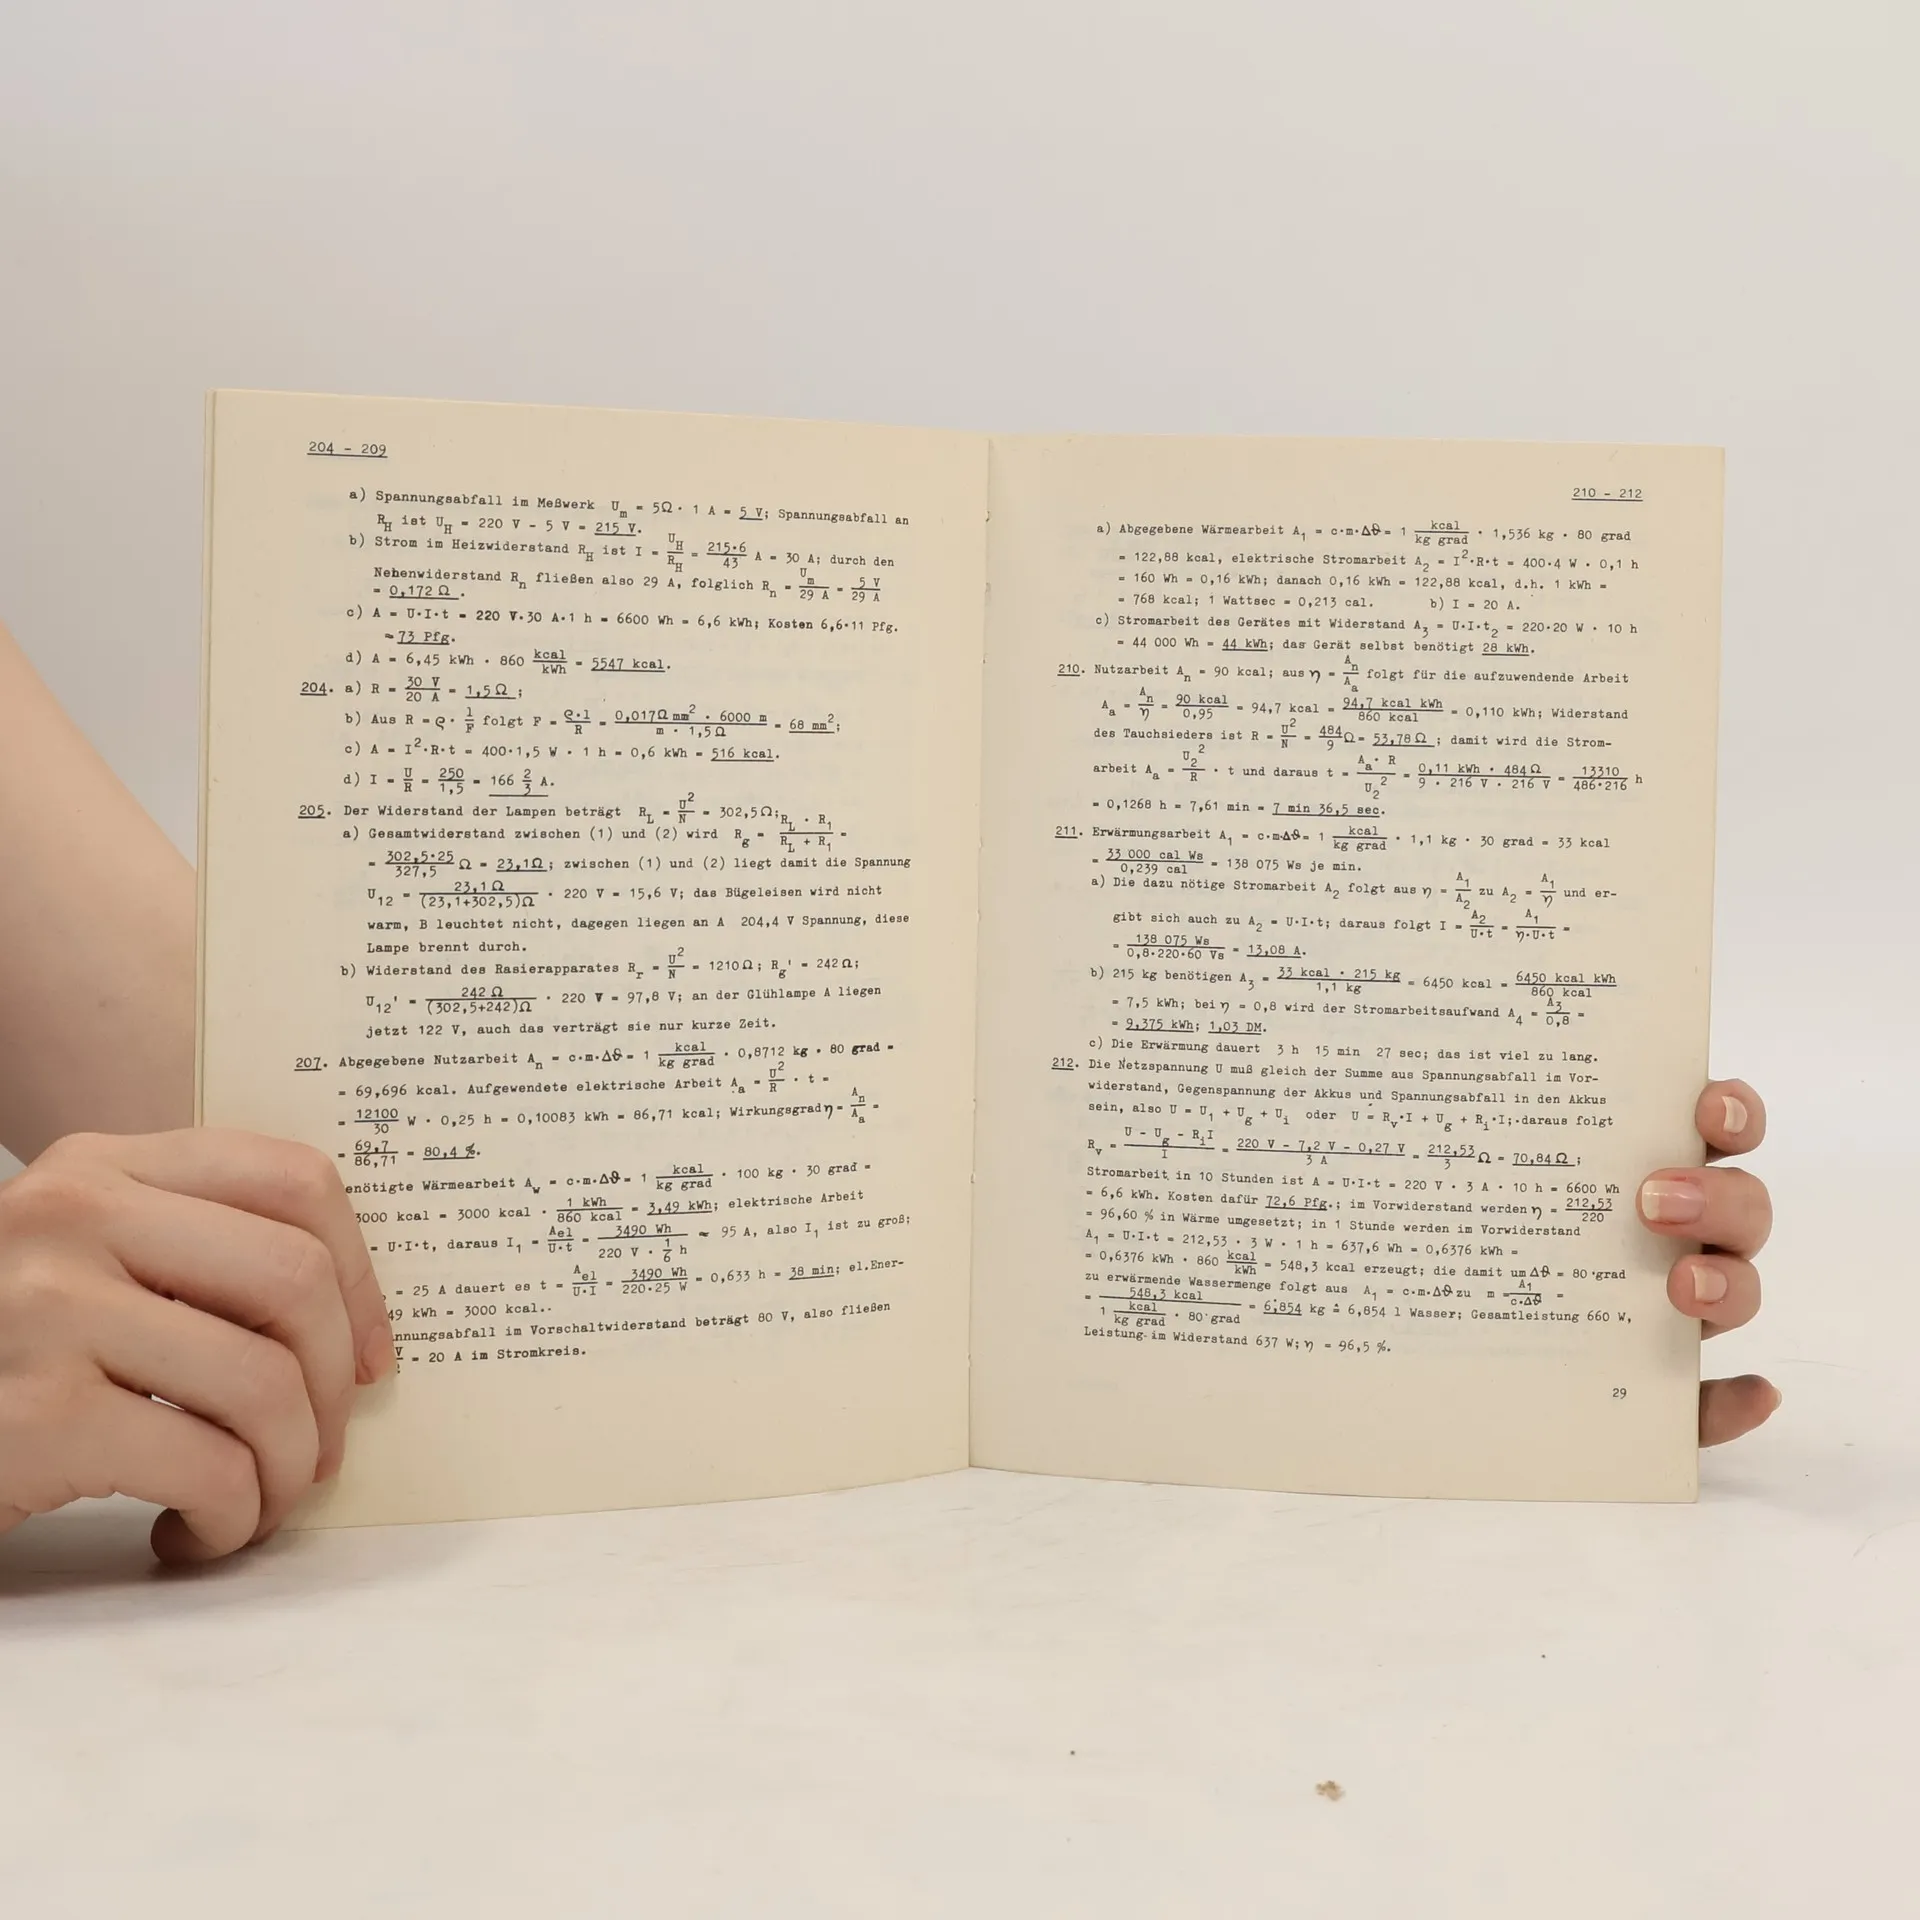 204 - 209
a) Spannungsabfall im Meßwerk U_m = 5Ω · 1 A = 5 V; Spannungsabfall an
R_H ist U_H = 220 V - 5 V = 215 V.
b) Strom im Heizwiderstand R_H ist I = U_H/R_H = 215·6/43 A = 30 A; durch den
Nebenwiderstand R_n fließen also 29 A, folglich R_n = U_m/29 A = 5 V/29 A
= 0,172 Ω.
c) A = U·I·t = 220 V·30 A·1 h = 6600 Wh = 6,6 kWh; Kosten 6,6·11 Pfg.
≈ 73 Pfg.
d) A = 6,45 kWh · 860 kcal/kWh = 5547 kcal.
204. a) R = 30 V/20 A = 1,5 Ω;
b) Aus R = ϱ · l/F folgt F = ϱ·l/R = 0,017Ω mm² · 6000 m/m · 1,5Ω = 68 mm²;
c) A = I²·R·t = 400·1,5 W · 1 h = 0,6 kWh = 516 kcal.
d) I = U/R = 250/1,5 = 166 2/3 A.
205. Der Widerstand der Lampen beträgt R_L = U²/N = 302,5Ω;
a) Gesamtwiderstand zwischen (1) und (2) wird R_g = R_L · R_1/R_L + R_1 =
= 302,5·25/327,5 Ω = 23,1Ω; zwischen (1) und (2) liegt damit die Spannung
U_12 = 23,1 Ω/(23,1+302,5)Ω · 220 V = 15,6 V; das Bügeleisen wird nicht
warm, B leuchtet nicht, dagegen liegen an A 204,4 V Spannung, diese
Lampe brennt durch.
b) Widerstand des Rasierapparates R_r = U²/N = 1210Ω; R_g' = 242Ω;
U_12' = 242 Ω/(302,5+242)Ω · 220 V = 97,8 V; an der Glühlampe A liegen
jetzt 122 V, auch das verträgt sie nur kurze Zeit.
207. Abgegebene Nutzarbeit A_n = c·m·Δϑ = 1 kcal/kg grad · 0,8712 kg · 80 grad =
= 69,696 kcal. Aufgewendete elektrische Arbeit A_a = U²/R · t =
= 12100/30 W · 0,25 h = 0,10083 kWh = 86,71 kcal; Wirkungsgrad η = A_n/A_a =
= 69,7/86,71 = 80,4 %.
enötigte Wärmearbeit A_w = c·m·Δϑ = 1 kcal/kg grad · 100 kg · 30 grad =
3000 kcal = 3000 kcal · 1 kWh/860 kcal = 3,49 kWh; elektrische Arbeit
= U·I·t, daraus I_1 = A_el/U·t = 3490 Wh/220 V · 1/6 h ≈ 95 A, also I_1 ist zu groß;
= 25 A dauert es t = A_el/U·I = 3490 Wh/220·25 W = 0,633 h = 38 min; el.Ener-
49 kWh = 3000 kcal..
nnungsabfall im Vorschaltwiderstand beträgt 80 V, also fließen
= 20 A im Stromkreis.
210 - 212
a) Abgegebene Wärmearbeit A_1 = c·m·Δϑ = 1 kcal/kg grad · 1,536 kg · 80 grad
= 122,88 kcal, elektrische Stromarbeit A_2 = I²·R·t = 400·4 W · 0,1 h
= 160 Wh = 0,16 kWh; danach 0,16 kWh = 122,88 kcal, d.h. 1 kWh =
= 768 kcal; 1 Wattsec = 0,213 cal. b) I = 20 A.
c) Stromarbeit des Gerätes mit Widerstand A_3 = U·I·t_2 = 220·20 W · 10 h
= 44 000 Wh = 44 kWh; das Gerät selbst benötigt 28 kWh.
210. Nutzarbeit A_n = 90 kcal; aus η = A_n/A_a folgt für die aufzuwendende Arbeit
A_a = A_n/η = 90 kcal/0,95 = 94,7 kcal = 94,7 kcal kWh/860 kcal = 0,110 kWh; Widerstand
des Tauchsieders ist R = U²/N = 484/9 Ω = 53,78 Ω; damit wird die Strom-
arbeit A_a = U_2²/R · t und daraus t = A_a · R/U_2² = 0,11 kWh · 484 Ω/9 · 216 V · 216 V = 13310/486·216 h
= 0,1268 h = 7,61 min = 7 min 36,5 sec.
211. Erwärmungsarbeit A_1 = c·m·Δϑ = 1 kcal/kg grad · 1,1 kg · 30 grad = 33 kcal
= 33 000 cal Ws/0,239 cal = 138 075 Ws je min.
a) Die dazu nötige Stromarbeit A_2 folgt aus η = A_1/A_2 zu A_2 = A_1/η und er-
gibt sich auch zu A_2 = U·I·t; daraus folgt I = A_2/U·t = A_1/η·U·t =
= 138 075 Ws/0,8·220·60 Vs = 13,08 A.
b) 215 kg benötigen A_3 = 33 kcal · 215 kg/1,1 kg = 6450 kcal = 6450 kcal kWh/860 kcal
= 7,5 kWh; bei η = 0,8 wird der Stromarbeitsaufwand A_4 = A_3/0,8 =
= 9,375 kWh; 1,03 DM.
c) Die Erwärmung dauert 3 h 15 min 27 sec; das ist viel zu lang.
212. Die Netzspannung U muß gleich der Summe aus Spannungsabfall im Vor-
widerstand, Gegenspannung der Akkus und Spannungsabfall in den Akkus
sein, also U = U_1 + U_g + U_i oder U = R_v·I + U_g + R_i·I; daraus folgt
R_v = U - U_g - R_iI/I = 220 V - 7,2 V - 0,27 V/3 A = 212,53/3 Ω = 70,84 Ω;
Stromarbeit in 10 Stunden ist A = U·I·t = 220 V · 3 A · 10 h = 6600 Wh
= 6,6 kWh. Kosten dafür 72,6 Pfg.; im Vorwiderstand werden η = 212,53/220
= 96,60 % in Wärme umgesetzt; in 1 Stunde werden im Vorwiderstand
A_1 = U·I·t = 212,53 · 3 W · 1 h = 637,6 Wh = 0,6376 kWh =
= 0,6376 kWh · 860 kcal/kWh = 548,3 kcal erzeugt; die damit um Δϑ = 80 grad
zu erwärmende Wassermenge folgt aus A_1 = c·m·Δϑ zu m = A_1/c·Δϑ =
= 548,3 kcal/1 kcal/kg grad · 80 grad = 6,854 kg ≙ 6,854 l Wasser; Gesamtleistung 660 W,
Leistung im Widerstand 637 W; η = 96,5 %.
29